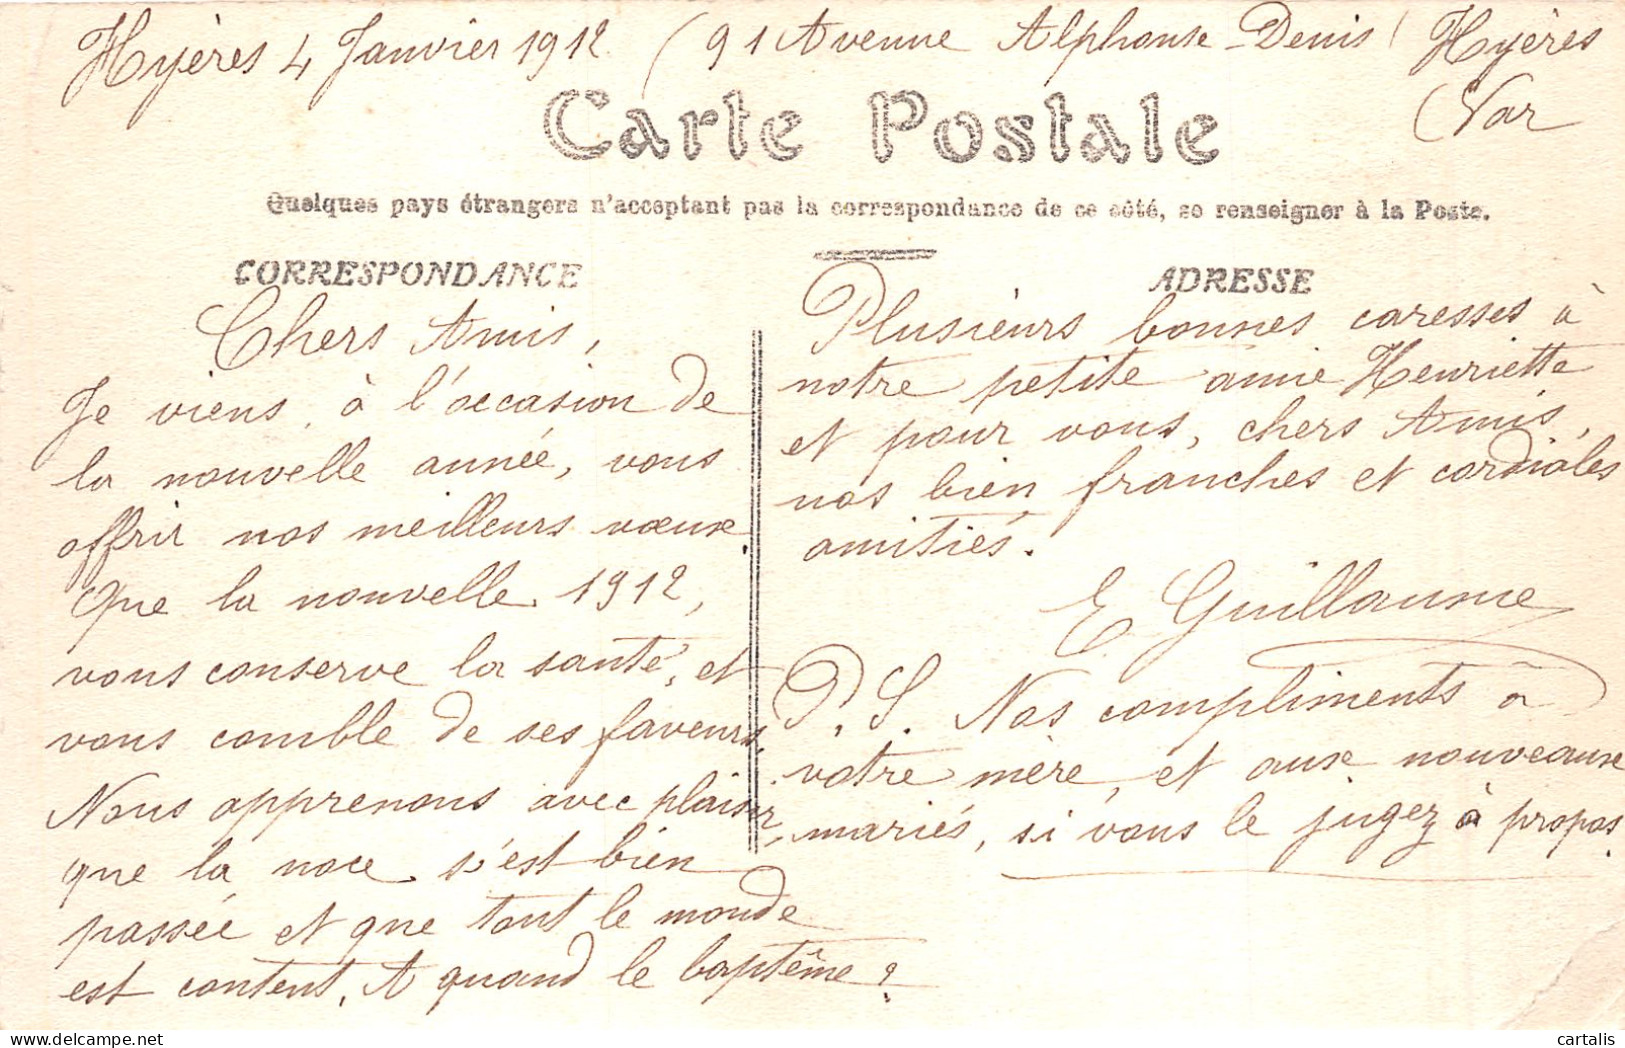 Hyères 4 Janvier 1912 (91 Avenue Alphonse-Denis) Hyères
(Var
Carte Postale
Quelques pays étrangers n'acceptant pas la correspondance de ce côté, se renseigner à la Poste.
CORRESPONDANCE
Chers Amis,
Je viens, à l'occasion de
la nouvelle année, vous
offrir nos meilleurs vœux.
Que la nouvelle 1912,
vous conserve la santé, et
vous comble de ses faveurs.
Nous apprenons avec plaisir,
que la noce s'est bien
passée et que tout le monde
est content. A quand le baptême?
ADRESSE
Plusieurs bonnes caresses à
notre petite amie Henriette
et pour vous, chers Amis,
nos bien franches et cordiales
amitiés.
E Guillaume
P.S. Nos compliments à
votre mère, et aux nouveaux
mariés, si vous le jugez à propos.
cartalis